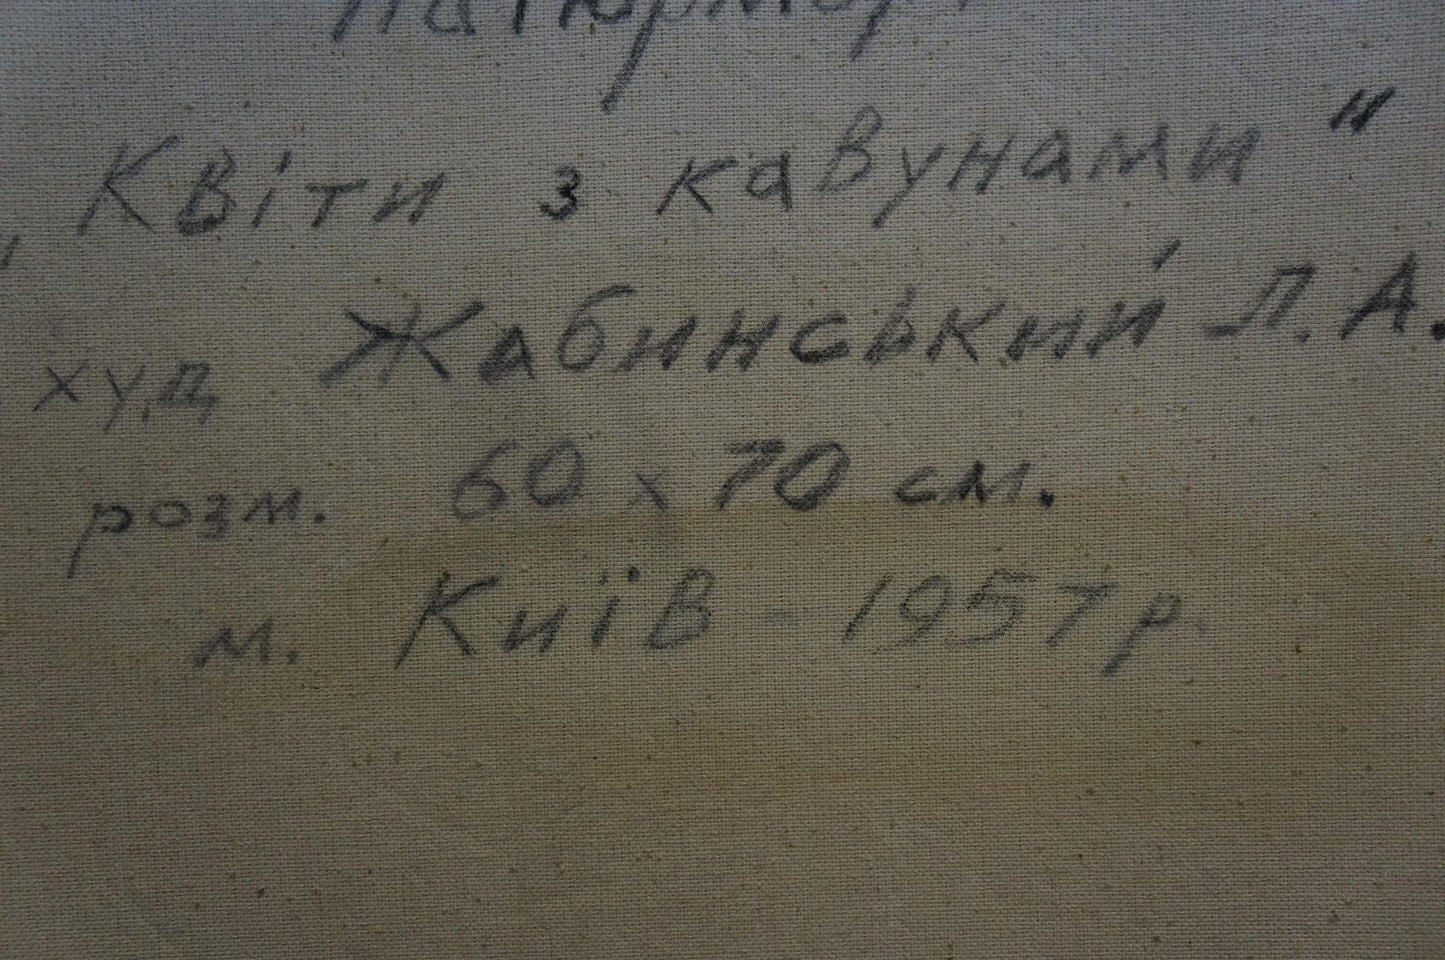 Натюрморт
„Квіти з кавунами"
худ Жабинський Л. А.
розм. 60 x 70 см.
м. Київ - 1957 р.